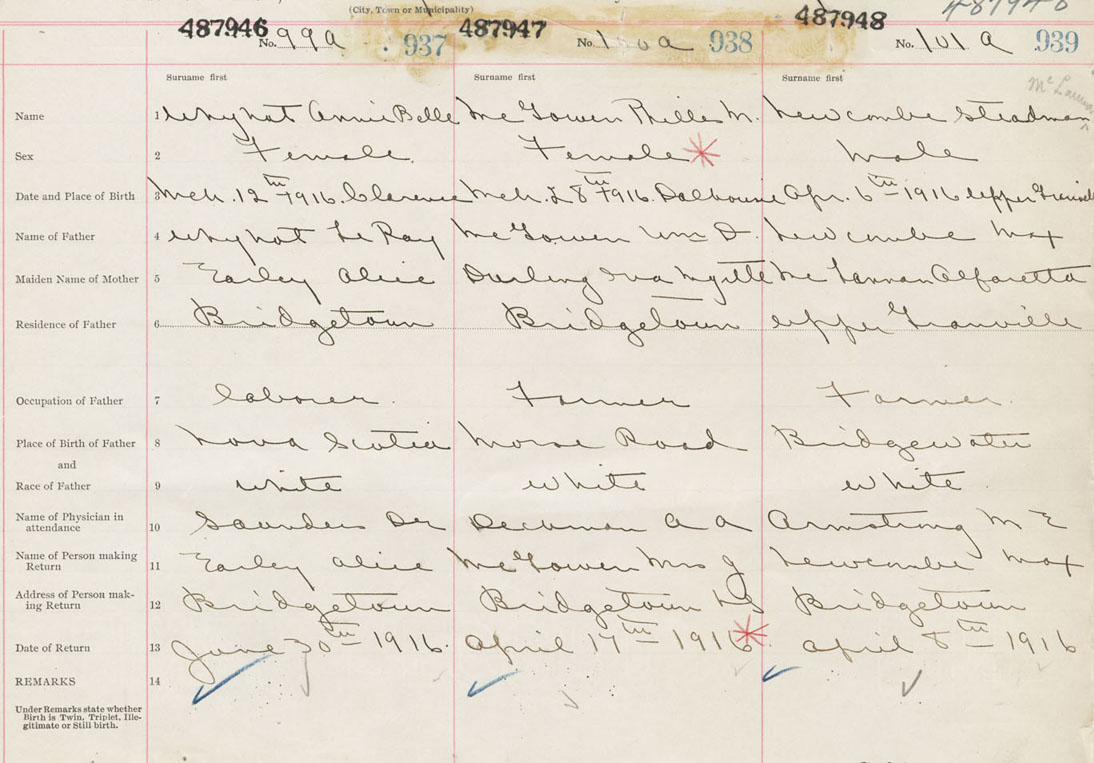 (City, Town or Municipality)
487946 487947 487948 487948
No. 99a 937 No. 100a 938 No. 101a 939
Surname first Surname first Surname first
McLarren
Name 1 Whynot Annie Belle McGowen Phillis M. Newcombe Steadman
Sex 2 Female. Female Male
Date and Place of Birth 3 Mch. 12th 1916. Clarence Mch. 28th 1916. Dalhousie Apr. 6th 1916 Upper Granville
Name of Father 4 Whynot Le Ray McGowen Wm D. Newcombe Max
Maiden Name of Mother 5 Earley Alice Durling Iva Myrtle McLarran Alfaretta
Residence of Father 6 Bridgetown Bridgetown Upper Granville
Occupation of Father 7 laborer. Farmer Farmer.
Place of Birth of Father 8 Nova Scotia Morse Road Bridgewater
and
Race of Father 9 White White White.
Name of Physician in
attendance 10 Saunders Dr Deckman A A Armstrong M E
Name of Person making
Return 11 Earley Alice McGowen Mrs J Newcombe Max
Address of Person mak-
ing Return 12 Bridgetown Bridgetown NS Bridgetown
Date of Return 13 June 30th 1916. April 17th 1916 April 8th 1916
REMARKS 14
Under Remarks state whether
Birth is Twin, Triplet, Ille-
gitimate or Still birth.